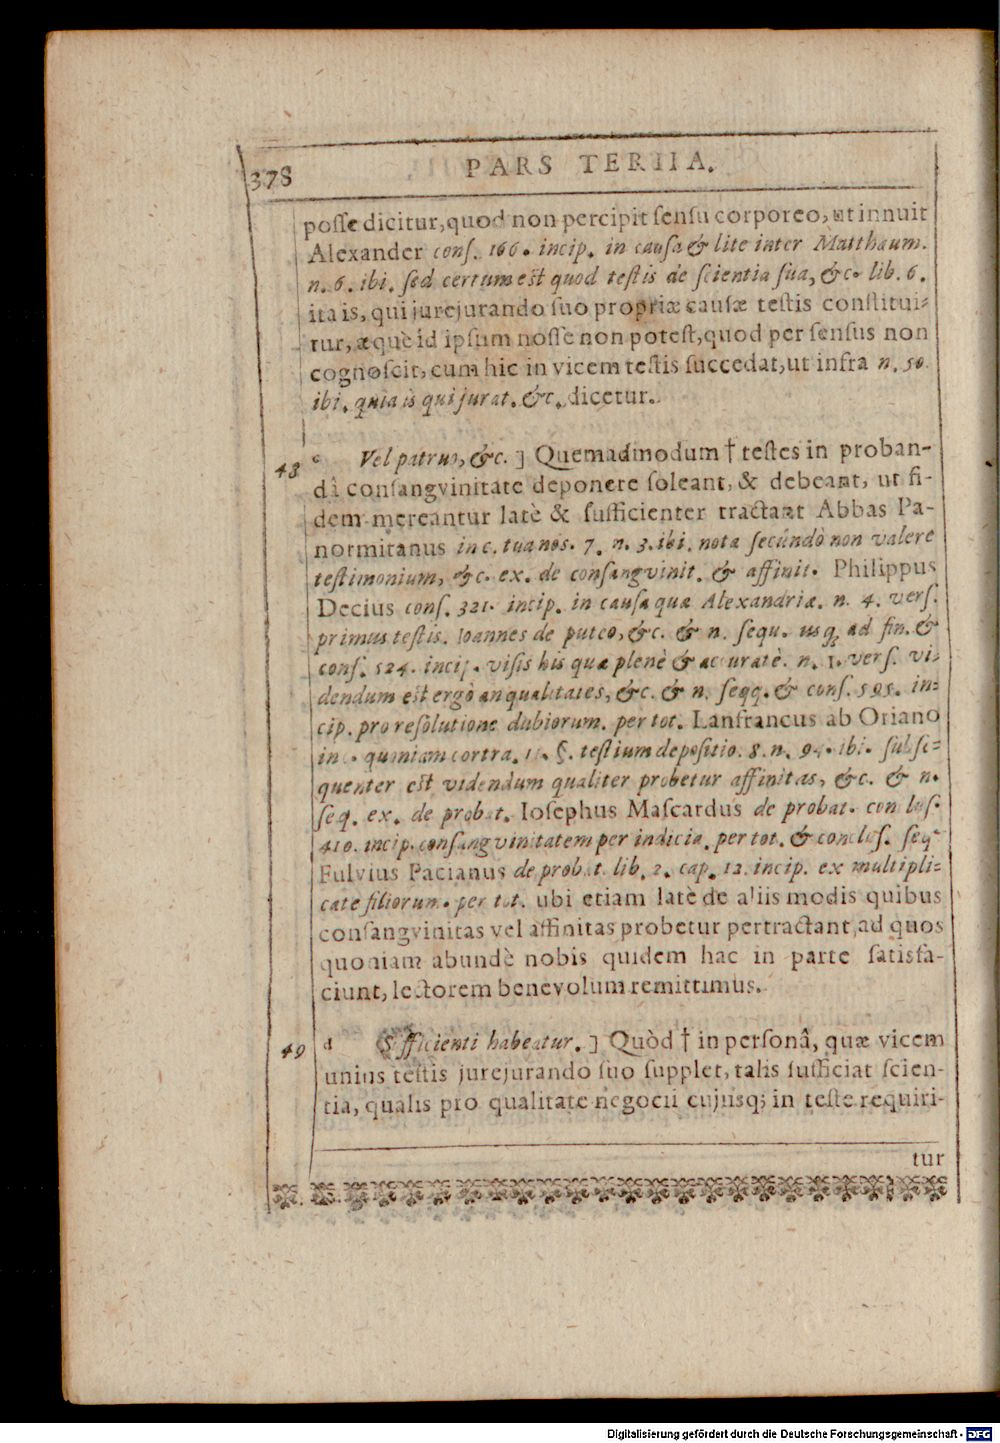 378
PARS TERIIA.
posse dicitur, quod non percipit sensu corporeo, ut innuit
Alexander cons. 166. incip. in causa & lite inter Matthæum.
n. 6. ibi. sed certum est quod testis de scientia sua, &c. lib. 6.
ita is, qui jurejurando suo propriæ causæ testis constitui-
tur, æquè id ipsum nosse non potest, quod per sensus non
cognoscit, cum hic in vicem testis succedat, ut infra n. 50.
ibi. quia is qui jurat. &c. dicetur.
48 c Vel patruo, &c. ] Quemadmodum † testes in proban-
dâ consangvinitate deponere soleant, & debeant, ut fi-
dem mereantur latè & sufficienter tractant Abbas Pa-
normitanus in c. tua nos. 7. n. 3. ibi. nota secundò non valere
testimonium, &c. ex. de consangvinit. & affinit. Philippus
Decius cons. 321. incip. in causa quæ Alexandriæ. n. 4. vers.
primus testis. Ioannes de puteo, &c. & n. sequ. usq; ad fin. &
cons. 524. incip. visis his quæ plenè & accuratè. n. 1. vers. vi-
dendum est ergò an qualitates, &c. & n. seqq. & cons. 595. in-
cip. pro resolutione dubiorum. per tot. Lanfrancus ab Oriano
in c. quoniam contra. 11. §. testium depositio. 8. n. 94. ibi. subse-
quenter est videndum qualiter probetur affinitas, &c. & n.
seq. ex. de probat. Iosephus Mascardus de probat. conclus.
410. incip. consangvinitatem per indicia. per tot. & conclus. seq.
Fulvius Pacianus de probat. lib. 2. cap. 12. incip. ex multipli-
cate filiorum. per tot. ubi etiam latè de aliis modis quibus
consangvinitas vel affinitas probetur pertractant, ad quos
quoniam abundè nobis quidem hac in parte satisfa-
ciunt, lectorem benevolum remittimus.
49 d Sufficienti habeatur. ] Quòd † in personâ, quæ vicem
unius testis jurejurando suo supplet, talis sufficiat scien-
tia, qualis pro qualitate negocii cujusq; in teste requiri-
tur
Digitalisierung gefördert durch die Deutsche Forschungsgemeinschaft - DFG